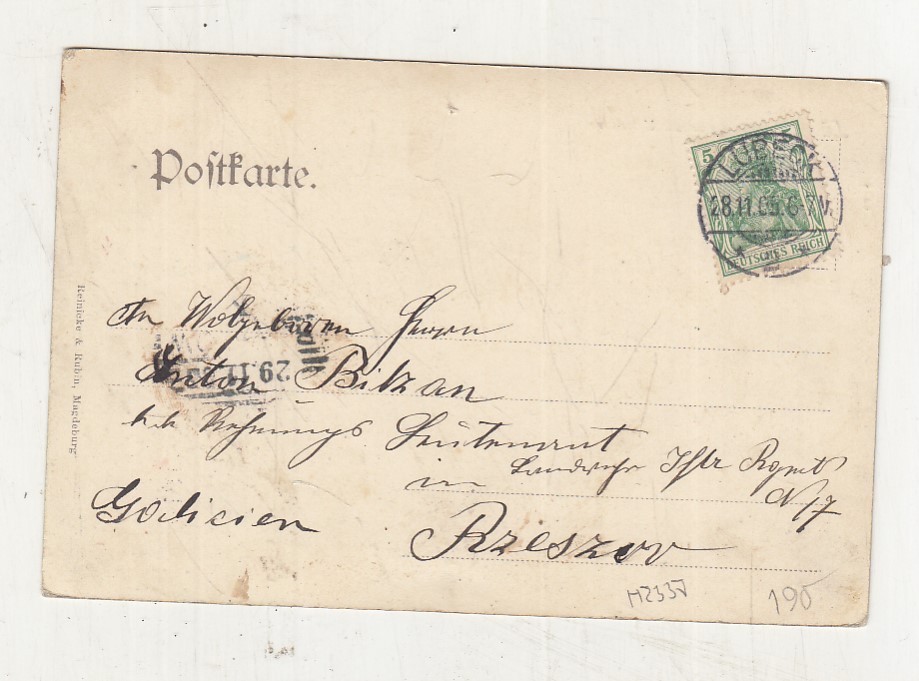 Postkarte.
5 5
LÜBECK
28.11.05. 6-7V.
DEUTSCHES REICH
Reinicke & Rubin, Magdeburg
An Wolgeboren Herrn
Anton Bilzan
29.11.05
k.k. Rechnungs Leutenant
in Landwehr Iftr Rgmt
N 17
Galicien
Rzeszov
H2337
190